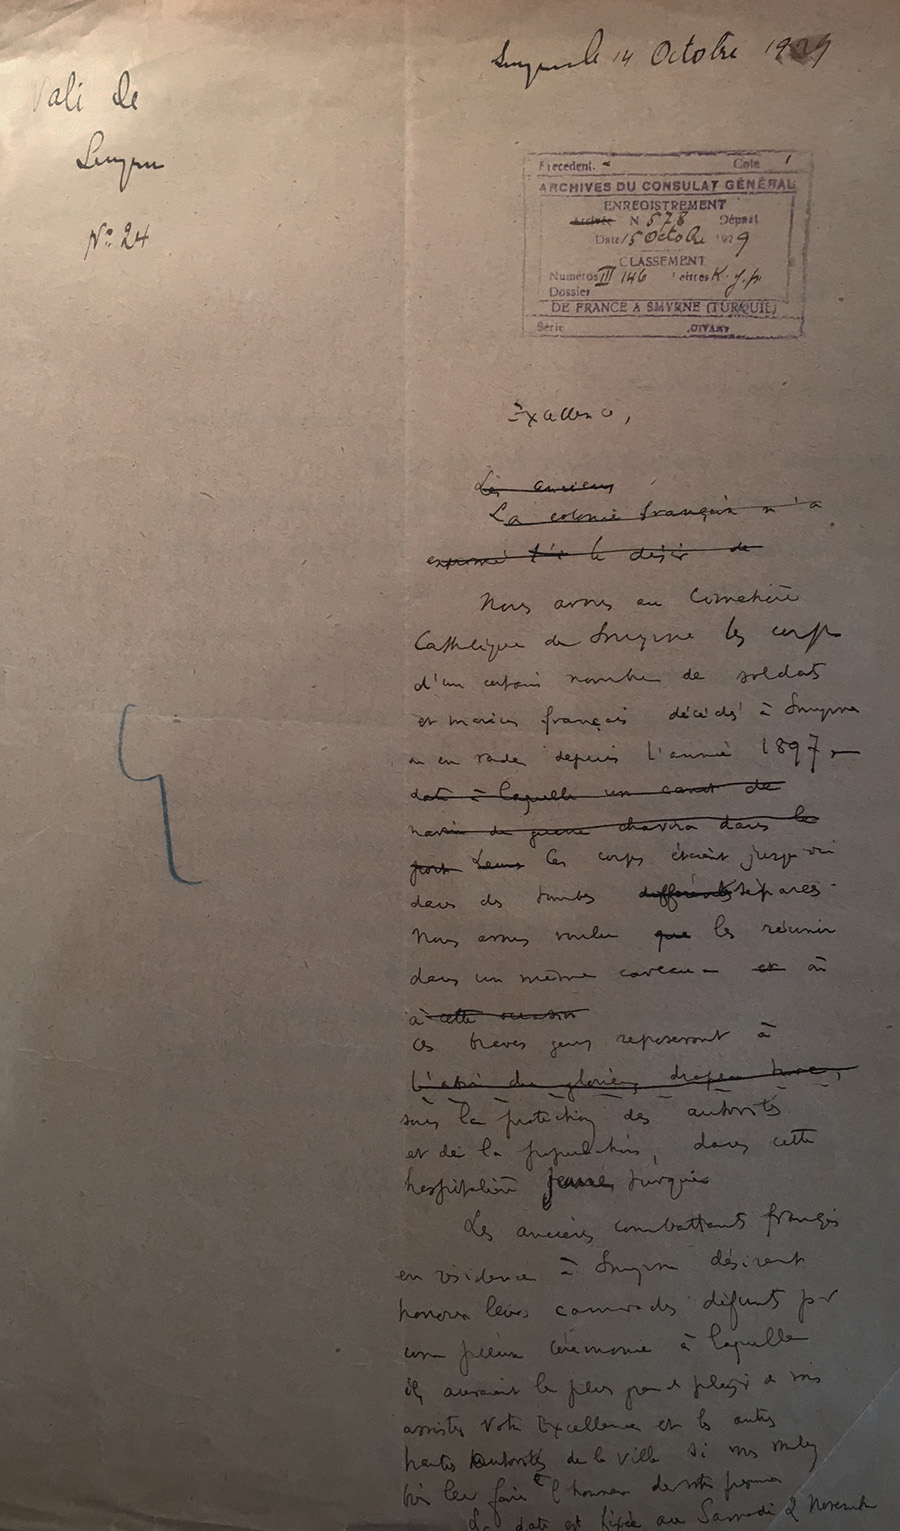 Smyrne le 14 Octobre 1929
Vali de
Smyrne
N° 24
Précédent. Cote
ARCHIVES DU CONSULAT GÉNÉRAL
ENREGISTREMENT
Arrivée N 578 Départ
Date 15 Octobre 1929
CLASSEMENT
Numéros III 146 Lettres K.
Dossier
DE FRANCE A SMYRNE (TURQUIE)
Série
Excellence,
Les anciens
La colonie française m'a
exprimé le désir de
Nous avons au Cimetière
Catholique de Smyrne les corps
d'un certain nombre de soldats
et marins français décédés à Smyrne
ou en rade, depuis l'année 1897
date à laquelle un canot de
navire de guerre chavira dans le
port Leurs Ces corps étaient jusqu'ici
dans des tombes différentes séparées.
Nous avons voulu que les réunir
dans un même caveau et où
à cette occasion
ces braves gens reposeront à
l'abri du glorieux drapeau turc,
sous la protection des autorités
et de la population, dans cette
hospitalière jeune Turquie
Les anciens combattants français
en résidence à Smyrne désirent
honorer leurs camarades défunts par
une pieuse cérémonie à laquelle
ils auraient le plus grand plaisir à voir
assister Votre Excellence et les autres
hautes Autorités de la ville si vous voulez
bien leur faire l'honneur de votre présence
La date est fixée au Samedi 2 Novembre